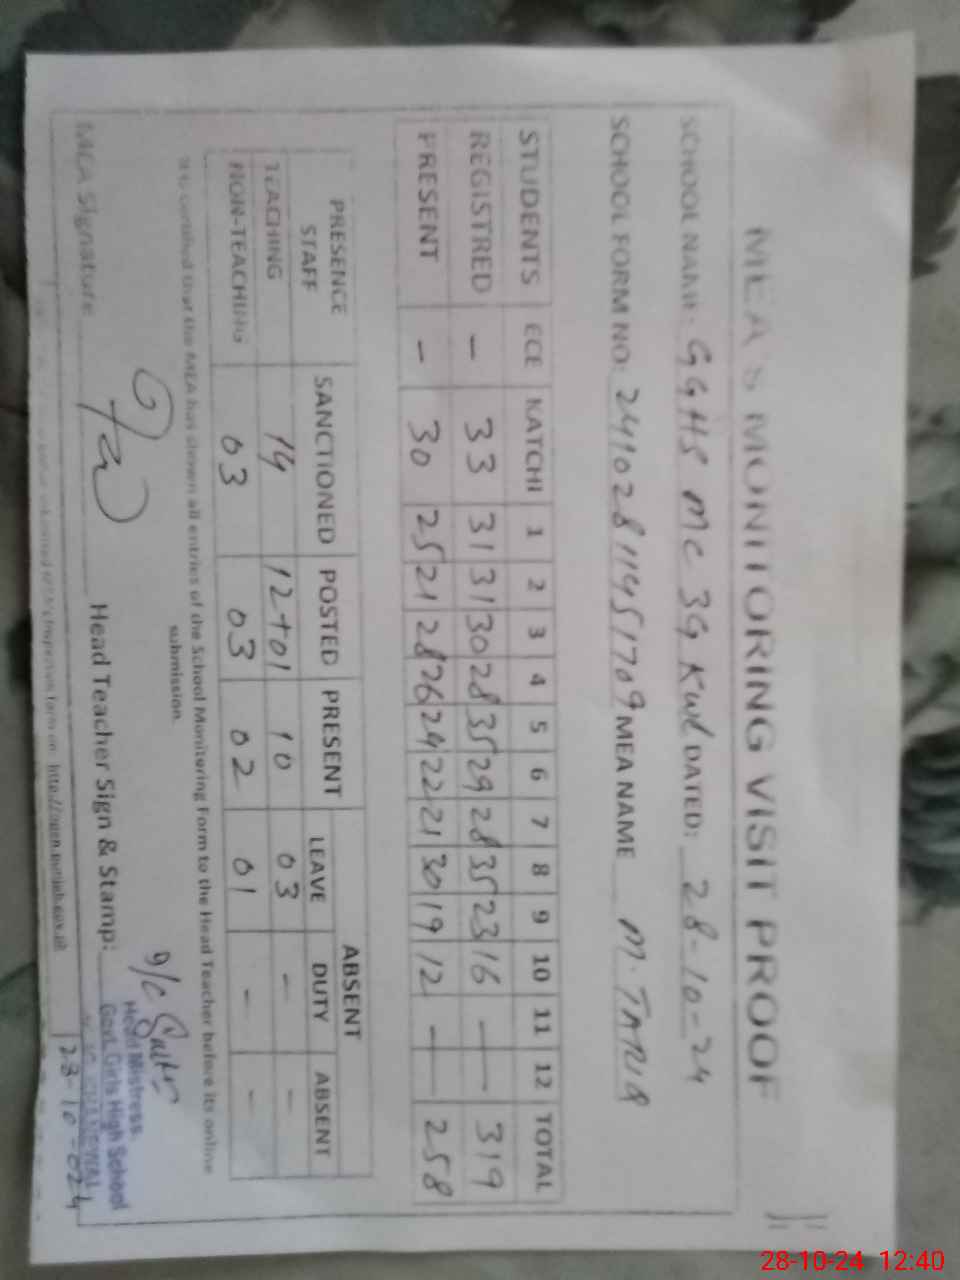 MEA'S MONITORING VISIT PROOF
SCHOOL NAME: GGHS MC 3G KWL DATED: 28-10-24
SCHOOL FORM NO: 24102811451709 MEA NAME M. TARIQ
STUDENTS ECE KATCHI 1 2 3 4 5 6 7 8 9 10 11 12 TOTAL
REGISTRED - 33 31 31 30 28 35 29 28 35 23 16 - - 319
PRESENT - 30 25 21 28 26 24 22 21 30 19 12 - - 258
PRESENCE STAFF SANCTIONED POSTED PRESENT ABSENT
LEAVE DUTY ABSENT
TEACHING 14 12+01 10 03 - -
NON-TEACHING 03 03 02 01 - -
It is certified that the MEA has shown all entries of the School Monitoring Form to the Head Teacher before its online
submission.
MEA Signature Head Teacher Sign & Stamp:
Head Mistress
Govt. Girls High School
KHANEWAL
http://open.punjab.gov.pk
28-10-024
28-10-24 12:40